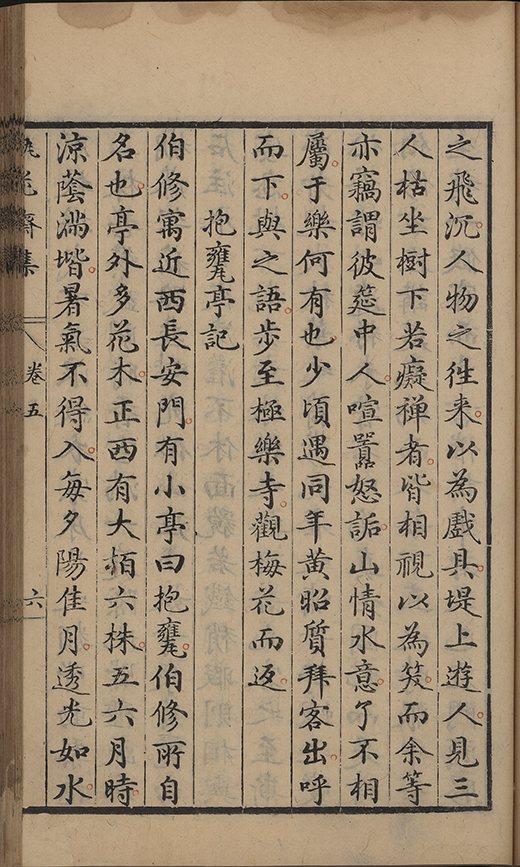 之飛沉人物之徃来以為戲具堤上遊人見三
人枯坐樹下若癡禅者皆相視以為笑而余等
亦竊謂彼筵中人喧嚣怒詬山情水意了不相
屬于樂何有也少頃遇同年黄昭質拜客出呼
而下與之語步至極樂寺觀梅花而返
抱甕亭記
伯修寓近西長安門有小亭曰抱甕伯修所自
名也亭外多花木正西有大栢六株五六月時
涼蔭滿堦暑氣不得入每夕陽佳月透光如水
齋集
卷五
六